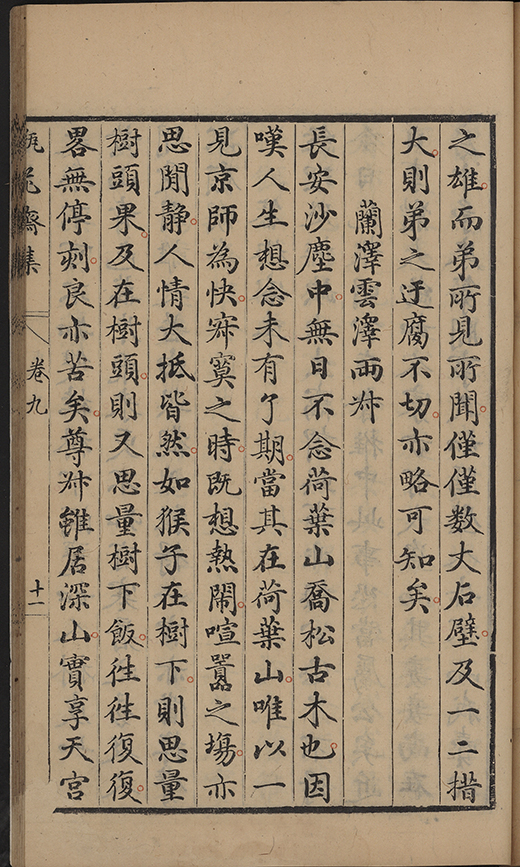 之雄而弟所見所聞僅僅数大石壁及一二措
大則弟之迂腐不切亦略可知矣
蘭澤雲澤兩叔
長安沙塵中無日不念荷葉山喬松古木也因
嘆人生想念未有了期當其在荷葉山唯以一
見京師為快寂寞之時既想熱鬧喧囂之塲亦
思閒静人情大抵皆然如猴子在樹下則思量
樹頭果及在樹頭則又思量樹下飯往往復復
畧無停刻良亦苦矣尊叔雖居深山實享天宮
瓶花齋集 卷九 十一